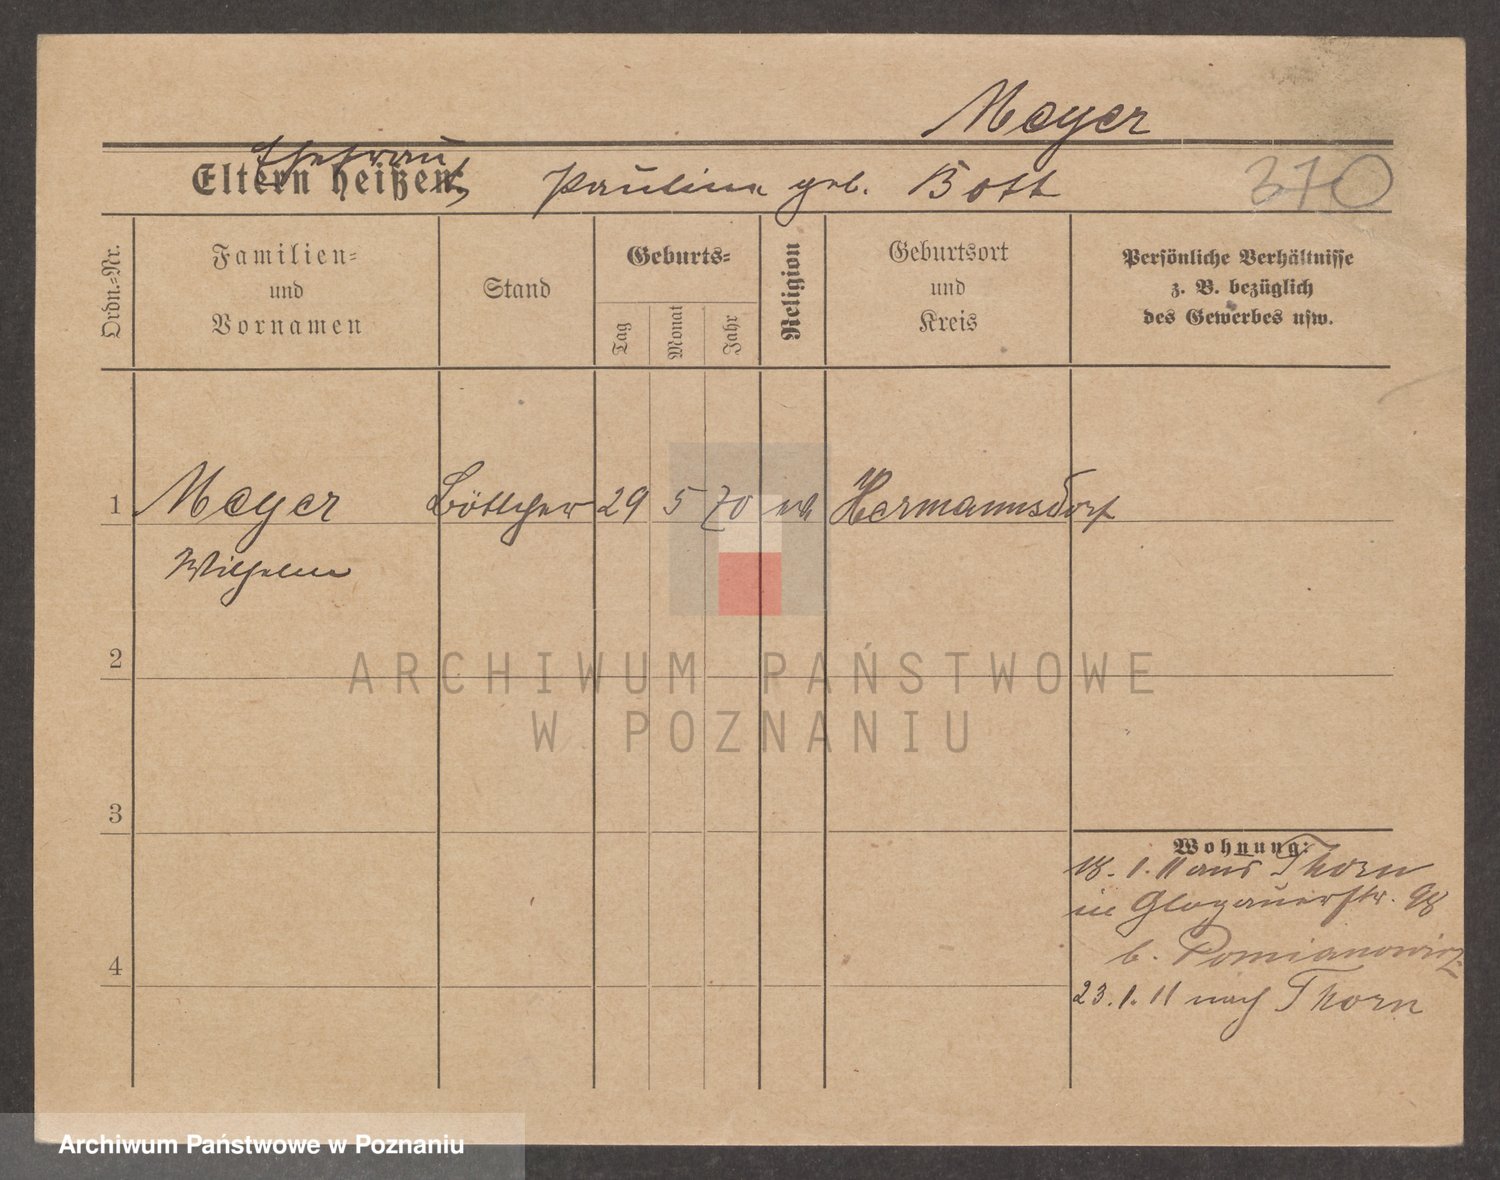 Meyer
Ehefrau
Eltern heißen:
Pauline geb. Bott
370
Ordn.-Nr.
Familien-
und
Vornamen
Stand
Geburts-
Tag
Monat
Jahr
Religion
Geburtsort
und
Kreis
Persönliche Verhältnisse
z. B. bezüglich
des Gewerbes usw.
1 Meyer Böttcher 29 5 70 Hermannsdorf
Wilhelm
2
ARCHIWUM PAŃSTWOWE
W POZNANIU
3
Wohnung:
18. 1. 11 aus Thorn
in Glogauerstr. 98
b. Pomianowicz
4
23. 1. 11 nach Thorn
Archiwum Państwowe w Poznaniu